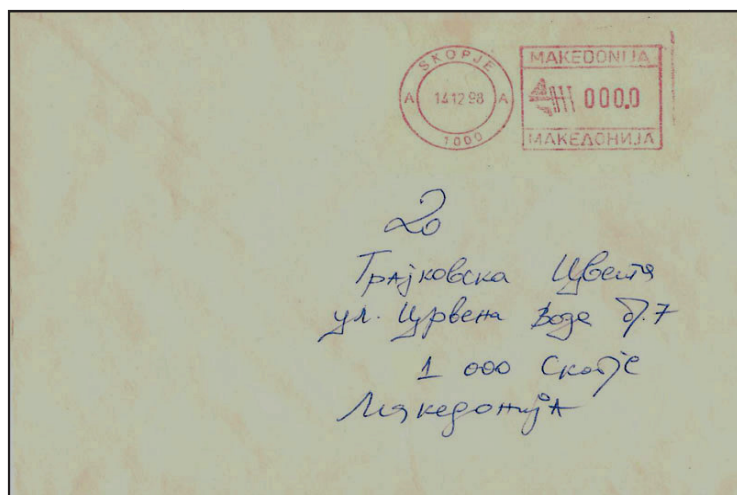 SKOPJE
A 14.12.98 A
1000
MAKEDONIJA
000.0
МАКЕДОНИЈА
До
Трајковска Цвета
ул. Црвена Вода бр. 7
1 000 Скопје
Македонија